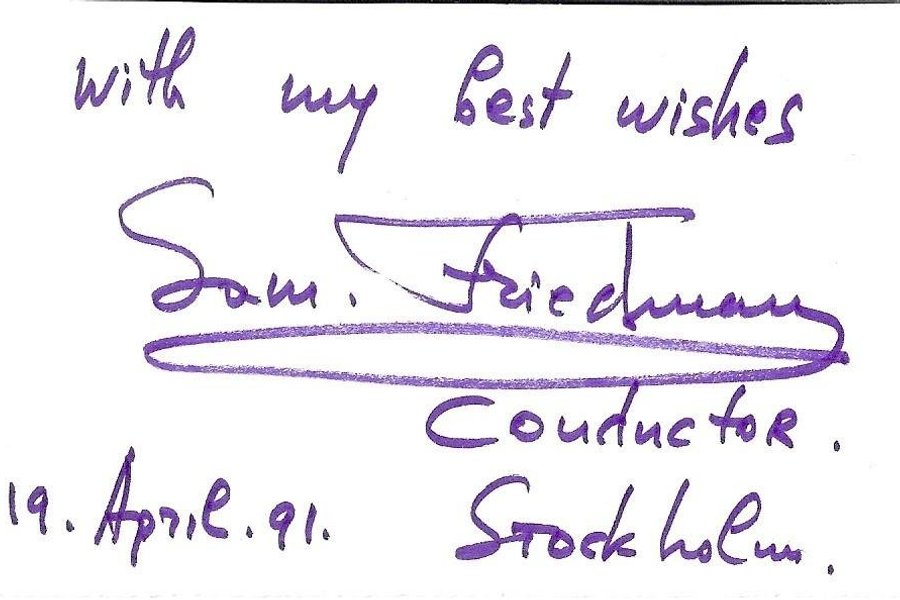 with my best wishes
Sam. Friedman
Conductor.
19. April. 91. Stockholm.